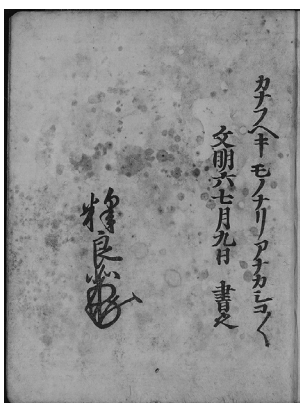 カナフヘキモノナリアナカシコ〳〵
文明六七月九日 書之
釋良心